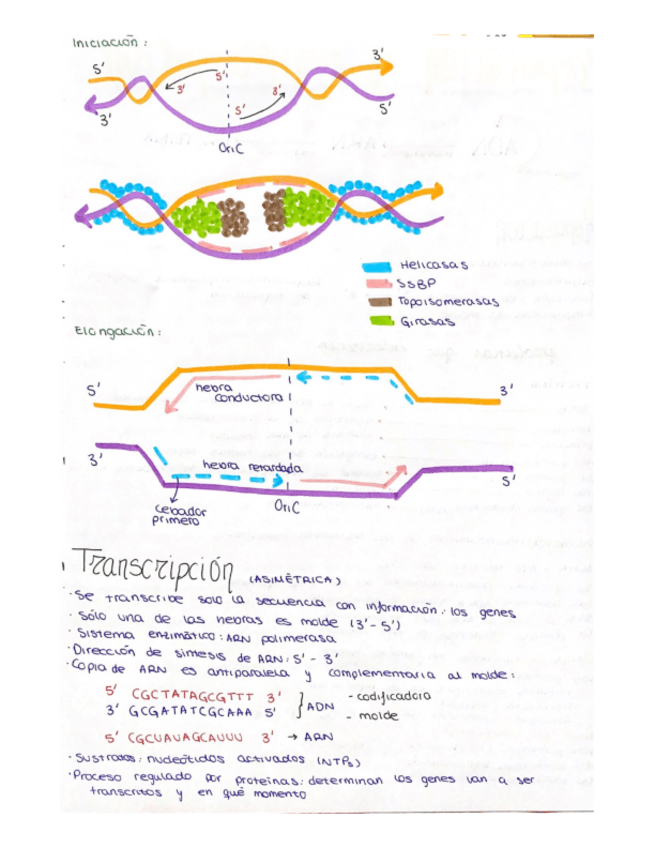 Iniciación:
5' 3'
5'
3' 3'
5'
3' 5'
OriC
Helicasas
SSBP
Topoisomerasas
Girasas
Elongación:
5' hebra 3'
conductora
3' hebra retardada 5'
cebador OriC
primero
Transcripción (ASIMÉTRICA)
· Se transcribe solo la secuencia con información: los genes
· Sólo una de las hebras es molde (3'-5')
· Sistema enzimático: ARN polimerasa
· Dirección de síntesis de ARN: 5' - 3'
· Copia de ARN es antiparalela y complementaria al molde:
5' CGCTATAGCGTTT 3' - codificadora
3' GCGATATCGCAAA 5' } ADN - molde
5' CGCUAUAGCAUUU 3' → ARN
· Sustratos: nucleótidos activados (NTPs)
· Proceso regulado por proteínas: determinan los genes van a ser
transcritos y en qué momento